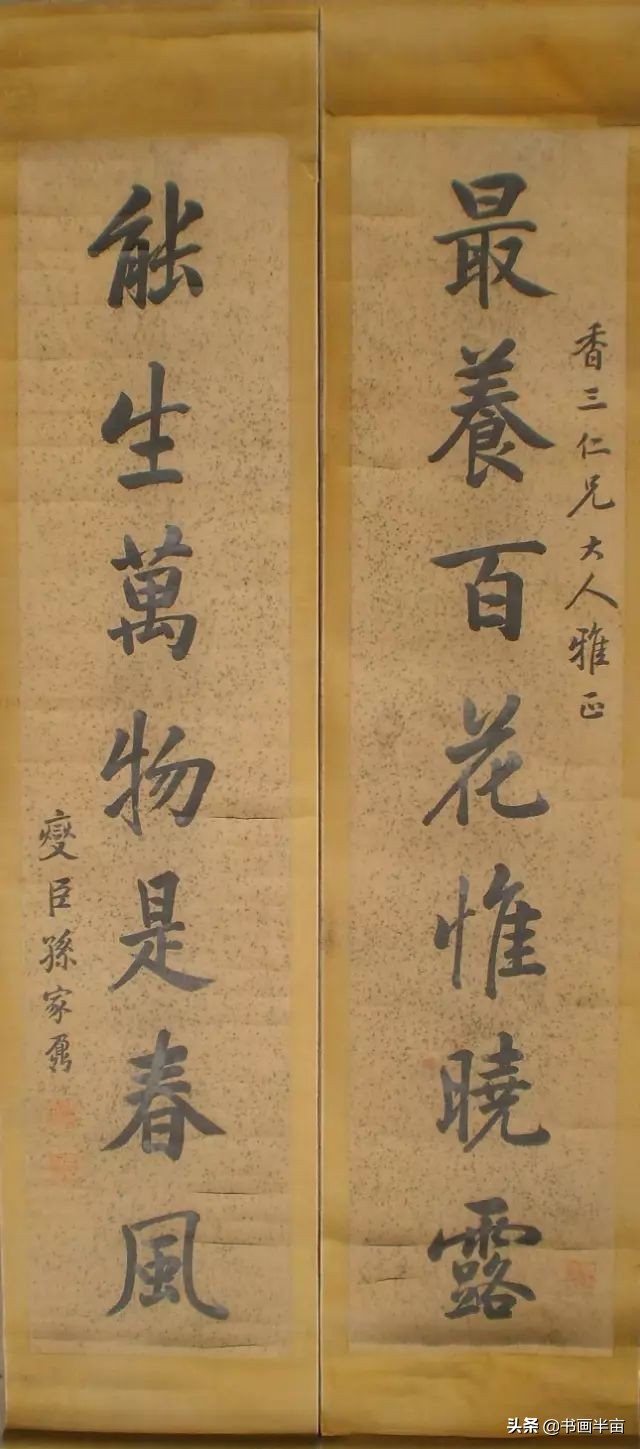 香三仁兄大人雅正
最養百花惟曉露
能生萬物是春風
燮臣孫家鼐
头条 @书画半亩